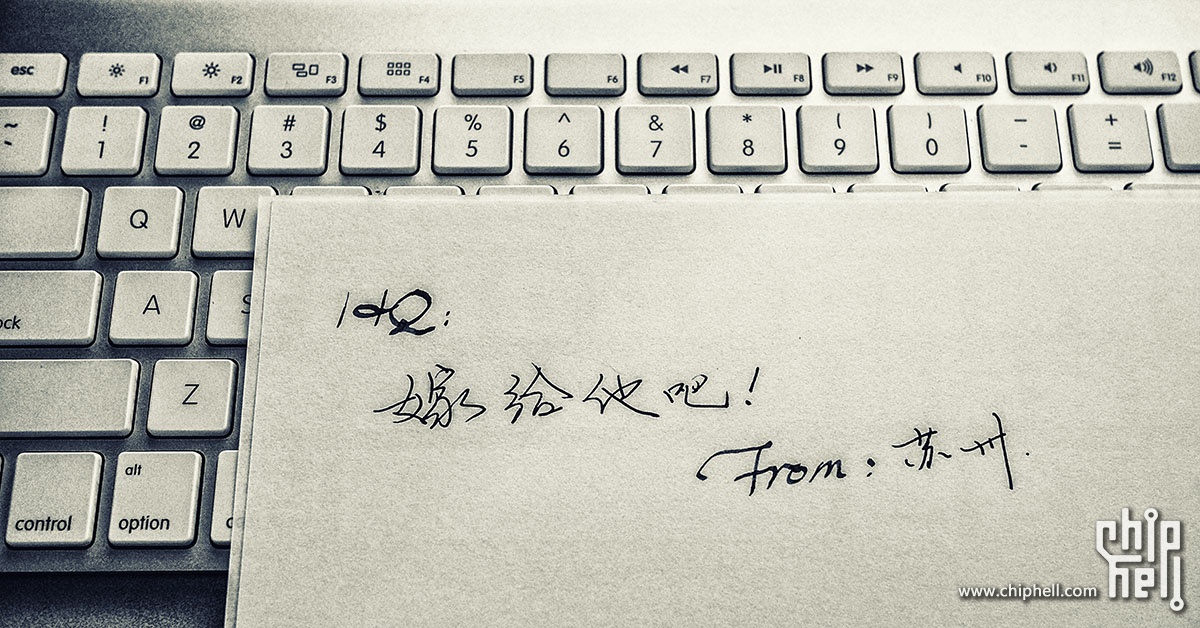 esc F1 F2 F3 F4 F5 F6 F7 F8 F9 F10 F11 F12
~ ! @ # $ % ^ & * ( ) — +
` 1 2 3 4 5 6 7 8 9 0 - =
Q W
HQ:
A S
ock
嫁给他吧!
Z
From: 苏州.
alt
control option
www.chiphell.com
chip
hell